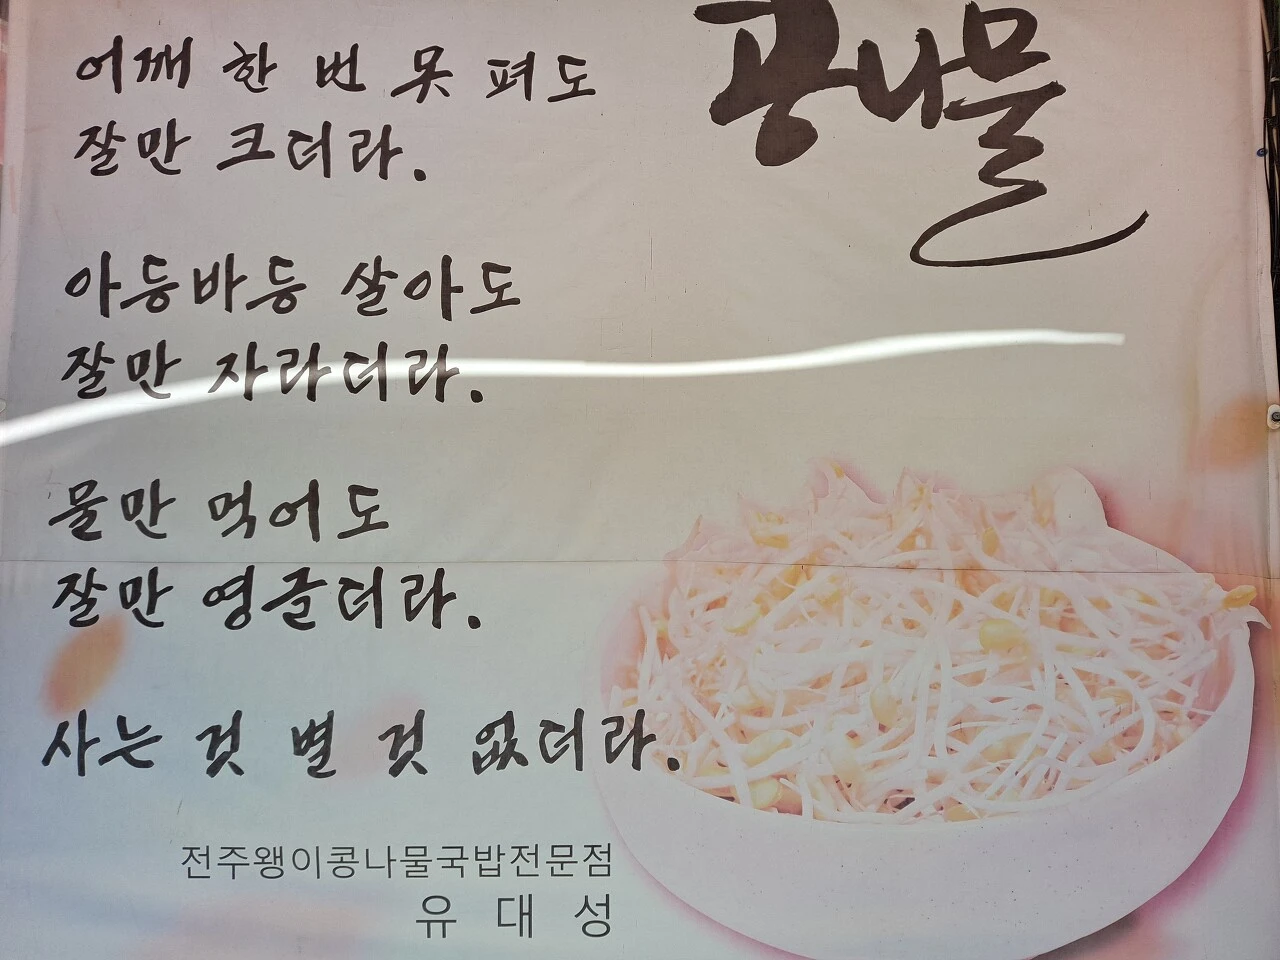 콩나물
어깨 한 번 못 펴도
잘만 크더라.
아등바등 살아도
잘만 자라더라.
물만 먹어도
잘만 영글더라.
사는 것 별 것 없더라.
전주왱이콩나물국밥전문점
유 대 성